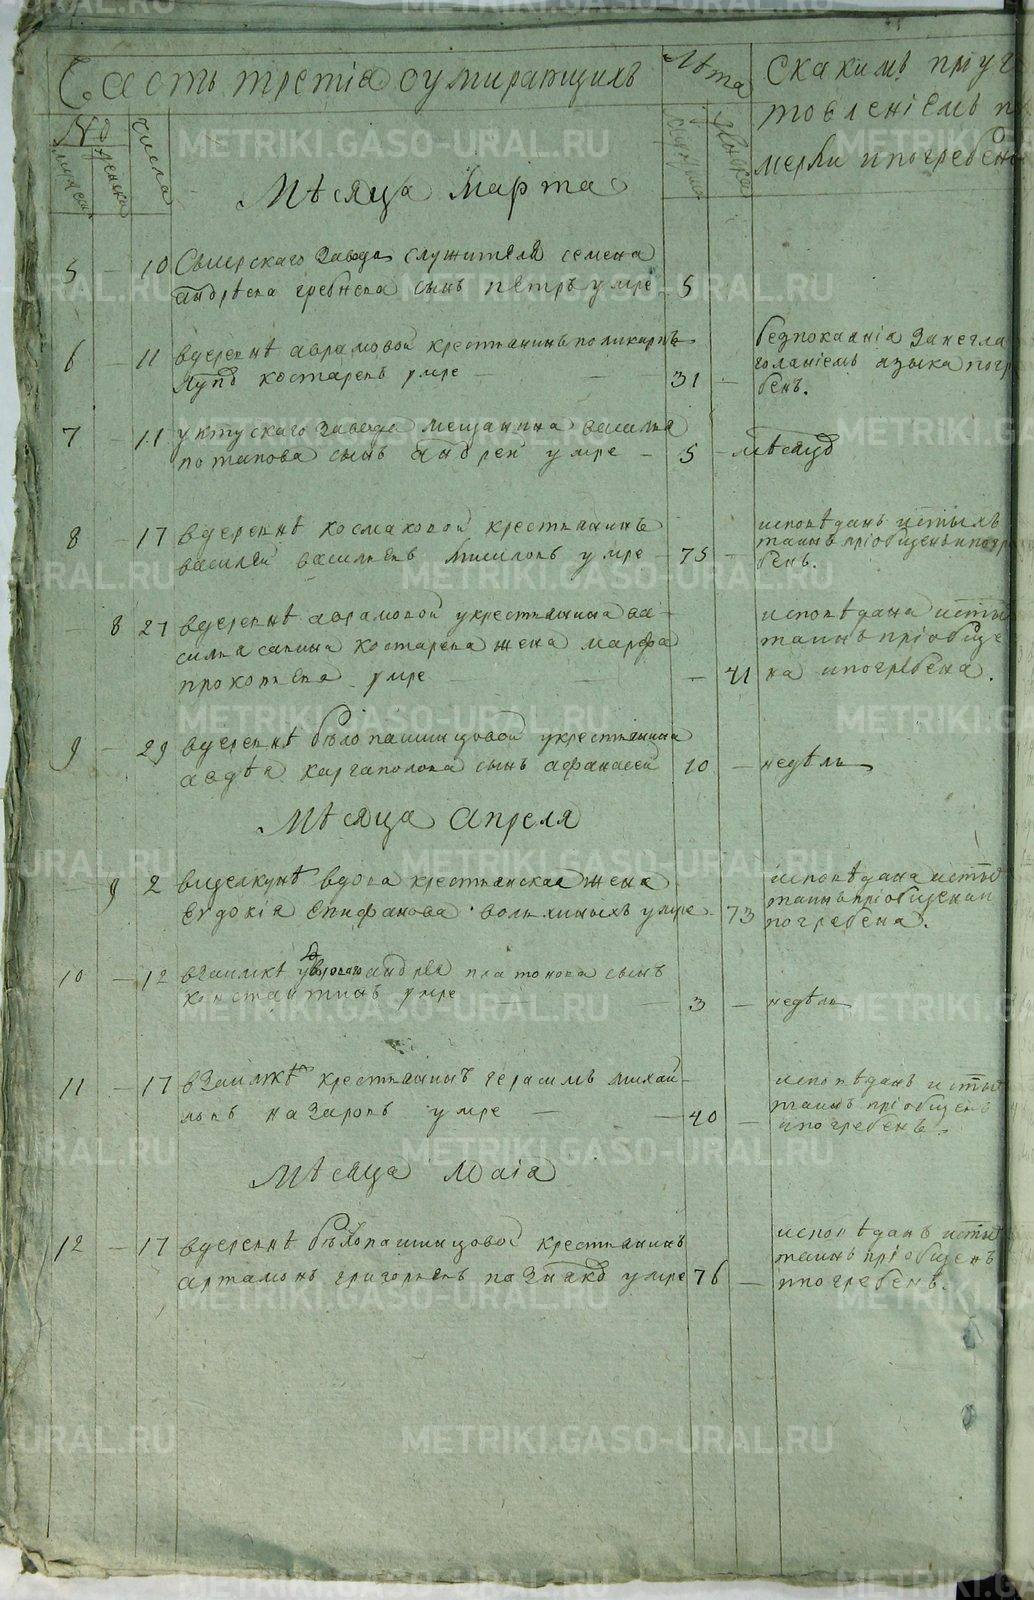 Часть третiа оумирающихъ
Лѣта
скакимъ приуг
товленiемъ п
мерли ипогребен
№
мужеска
женска
числа
мужеска
женска
Мѣсяца Марта
5 — 10 Сысерскаго завода служителя семена
андрѣева гребнева сынъ петръ умре 5
6 — 11 вдеревнѣ аврамовой крестьянинъ поликарпъ
костаревъ умре — 31 —
безпокаянiа занегла
голанiемъ языка погр
бенъ.
7 — 11 уктускаго завода мещанина василья
потапова сынъ андрей умре — 5 — мѣсяцъ
8 — 17 вдеревнѣ космаковой крестьянинъ
василей васильевъ умре 75 —
исповѣданъ истыхъ
таинъ прiобщенъ ипогр
бенъ.
— 8 21 вдеревнѣ аврамовой укрестьянина ва-
силья савина костарева жена марфа
прокопьева умре — 41
исповѣдана исты
таинъ прiобще
на ипогребена.
9 — 29 вдеревнѣ бѣлопашинцовой укрестьянина
авдѣя каргаполова сынъ афанасей 10 — недѣль
Мѣсяца апреля
9 2 вщелкунѣ вдова крестьянская жена
Евдокiя Епифанова вольхиныхъ умре 73
исповѣдана исты
таинъ прiобщена и
погребена.
10 — 12 взаимкѣ андрея платонова сынъ
констаѵтинъ умре 3 — недѣль
11 — 17 взаимкѣ крестьянинъ герасимъ михай-
ловъ назаровъ умре — 40 —
исповѣданъ исты
таинъ прiобщенъ
ипогребенъ.
Мѣсяца маiа
12 — 17 вдеревнѣ бѣлопашинцовой крестьянинъ
артамонъ григорьевъ умре 76 —
исповѣданъ исты
таинъ прiобщенъ
ипогребенъ.
METRIKI.GASO-URAL.RU